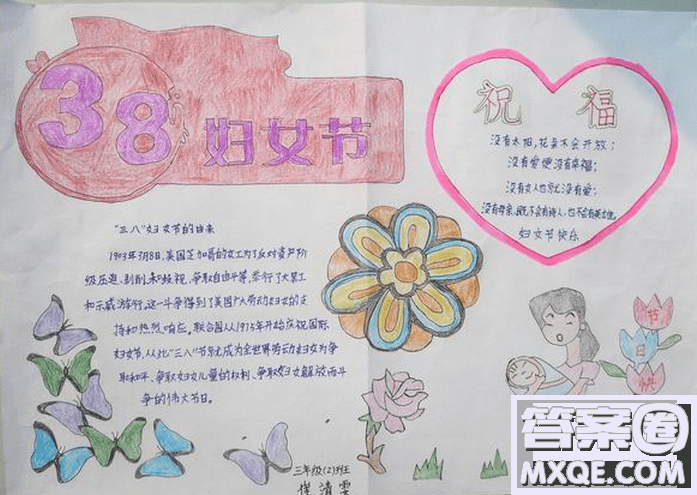 38妇女节
"三八"妇女节的由来
1903年3月8日,美国芝加哥的女工为了反对资产阶
级压迫、剥削、和歧视,争取自由平等,举行了大罢工
和示威游行,这一斗争得到了美国广大劳动妇女的支
持和热烈响应。联合国从1975年开始庆祝国际
妇女节,从此"三八"节就成为全世界劳动妇女为争
取和平、争取妇女儿童的权利、争取妇女解放而斗
争的伟大节日。
祝福
没有太阳,花朵不会开放;
没有爱便没有幸福;
没有女人也就没有爱;
没有母亲,既不会有诗人,也不会有英雄。
妇女节快乐
节
日
快
三年级(2)班
清雯
答案圈
MXQE.COM